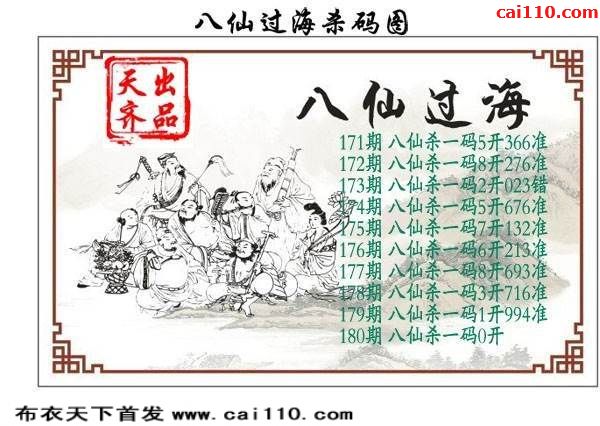 cai110.com
八仙过海杀码图
天齐出品
八仙过海
171期 八仙杀一码5开366准
172期 八仙杀一码8开276准
173期 八仙杀一码2开023错
174期 八仙杀一码5开676准
175期 八仙杀一码7开132准
176期 八仙杀一码6开213准
177期 八仙杀一码8开693准
178期 八仙杀一码3开716准
179期 八仙杀一码1开994准
180期 八仙杀一码0开
布衣天下首发 www.cai110.com